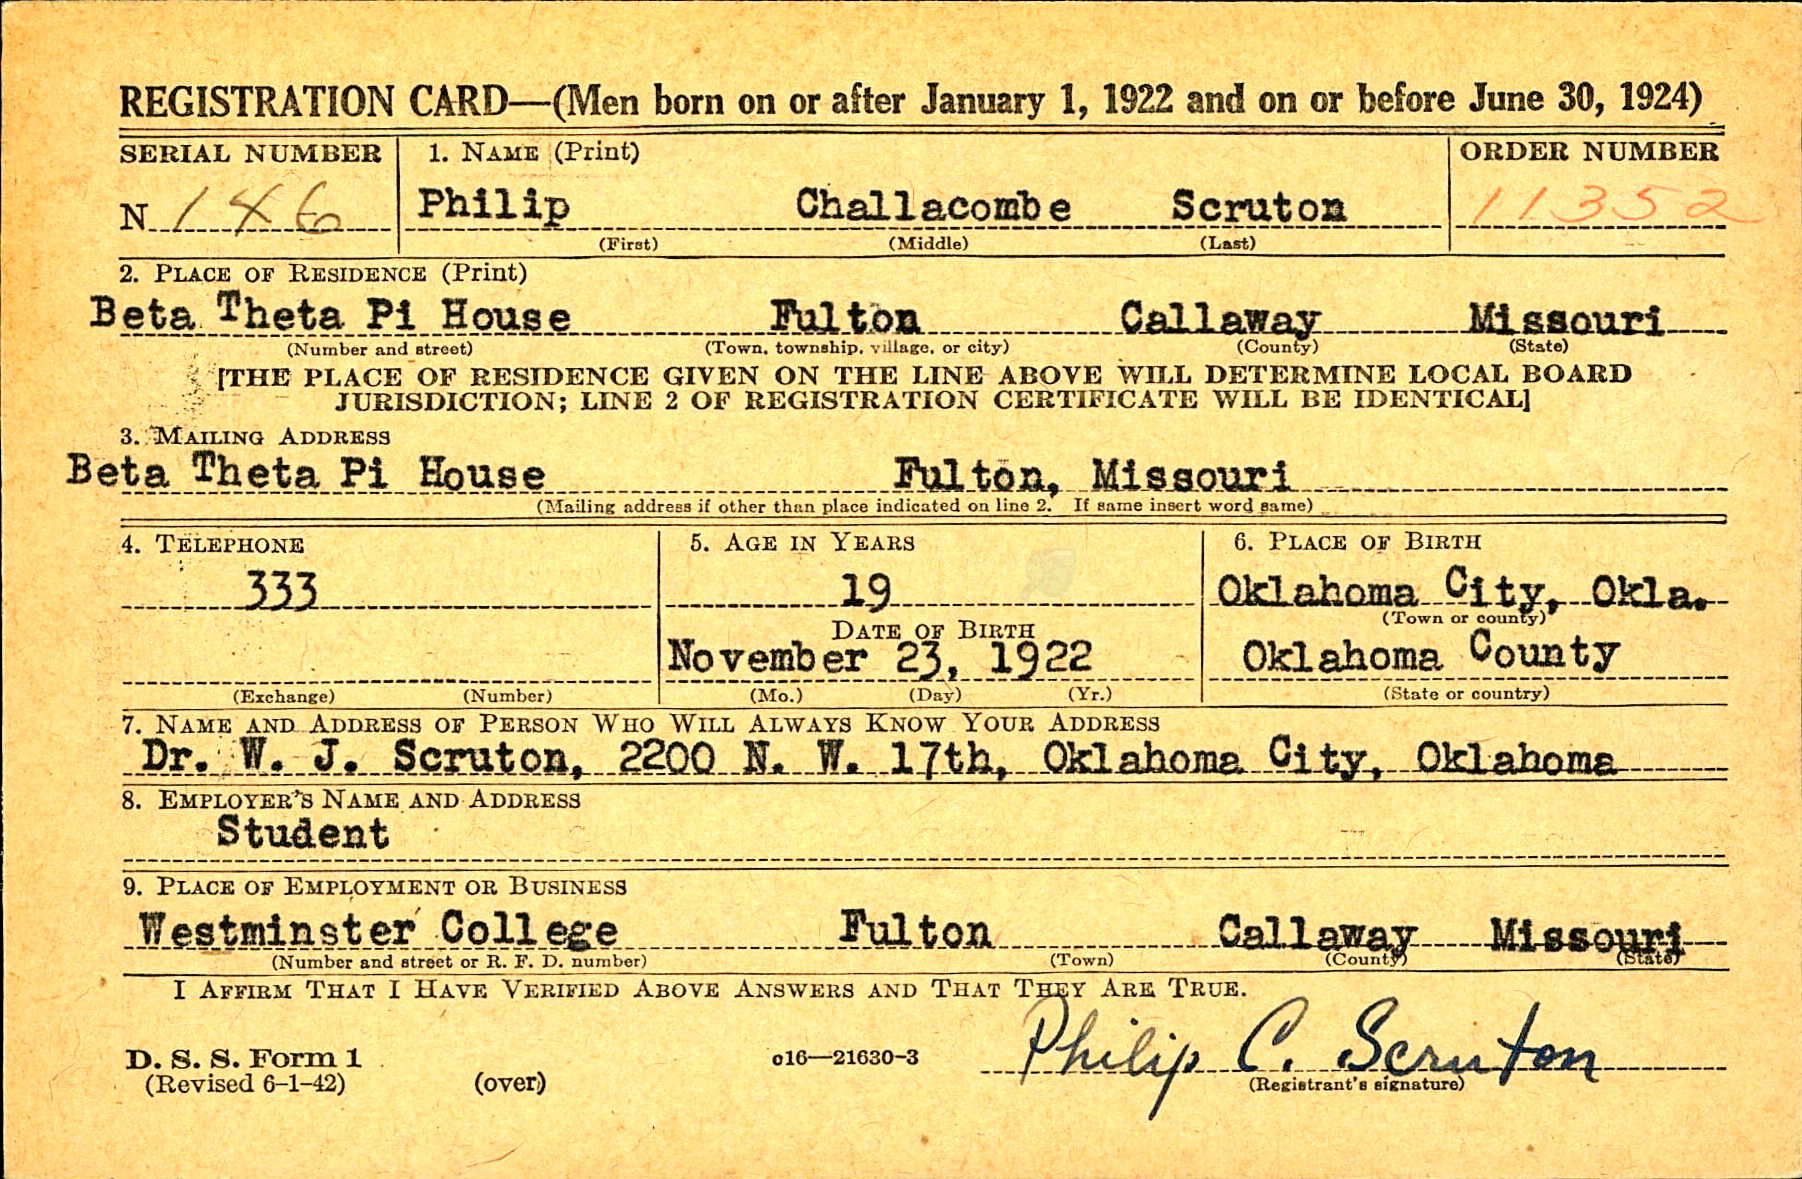 REGISTRATION CARD—(Men born on or after January 1, 1922 and on or before June 30, 1924)
SERIAL NUMBER 1. NAME (Print) ORDER NUMBER
N 146 Philip Challacombe Scruton 11352
(First) (Middle) (Last)
2. PLACE OF RESIDENCE (Print)
Beta Theta Pi House Fulton Callaway Missouri
(Number and street) (Town, township, village, or city) (County) (State)
[THE PLACE OF RESIDENCE GIVEN ON THE LINE ABOVE WILL DETERMINE LOCAL BOARD
JURISDICTION; LINE 2 OF REGISTRATION CERTIFICATE WILL BE IDENTICAL]
3. MAILING ADDRESS
Beta Theta Pi House Fulton, Missouri
(Mailing address if other than place indicated on line 2. If same insert word same)
4. TELEPHONE 5. AGE IN YEARS 6. PLACE OF BIRTH
333 19 Oklahoma City, Okla.
(Town or county)
DATE OF BIRTH
November 23, 1922 Oklahoma County
(Exchange) (Number) (Mo.) (Day) (Yr.) (State or country)
7. NAME AND ADDRESS OF PERSON WHO WILL ALWAYS KNOW YOUR ADDRESS
Dr. W. J. Scruton, 2200 N. W. 17th, Oklahoma City, Oklahoma
8. EMPLOYER'S NAME AND ADDRESS
Student
9. PLACE OF EMPLOYMENT OR BUSINESS
Westminster College Fulton Callaway Missouri
(Number and street or R. F. D. number) (Town) (County) (State)
I AFFIRM THAT I HAVE VERIFIED ABOVE ANSWERS AND THAT THEY ARE TRUE.
Philip C. Scruton
D. S. S. Form 1 o16—21630-3
(Revised 6-1-42) (over) (Registrant's signature)